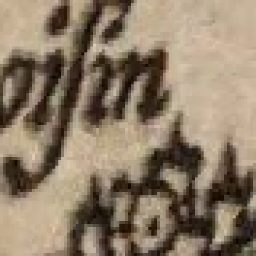 oiſin